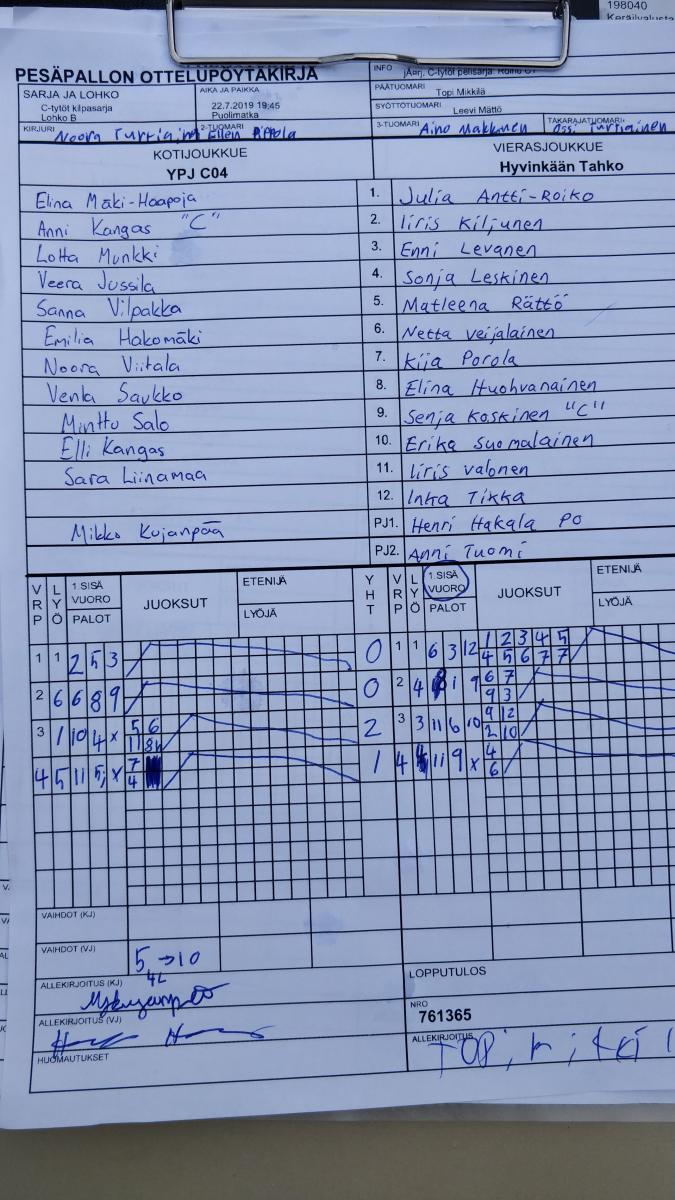 198040
PESÄPALLON OTTELUPÖYTÄKIRJA
INFO
SARJA JA LOHKO
C-tytöt kilpasarja
Lohko B
AIKA JA PAIKKA
22.7.2019 19:45
Puolimatka
PÄÄTUOMARI
Topi Mikkilä
SYÖTTÖTUOMARI
Leevi Mättö
KIRJURI
Noora
2-TUOMARI
Ellen
3-TUOMARI
Aino Makkonen
TAKARAJATUOMARI
Ossi Turtiainen
KOTIJOUKKUE
YPJ C04
VIERASJOUKKUE
Hyvinkään Tahko
Elina Mäki-Haapoja 1. Julia Antti-Roiko
Anni Kangas "C" 2. Iiris Kiljunen
Lotta Munkki 3. Enni Levanen
Veera Jussila 4. Sonja Leskinen
Sanna Vilpakka 5. Matleena Rättö
Emilia Hakomäki 6. Netta Veijalainen
Noora Viitala 7. Kija Porola
Venla Saukko 8. Elina Huohvanainen
Minttu Salo 9. Senja Koskinen "C"
Elli Kangas 10. Erika Suomalainen
Sara Liinamaa 11. Iiris Valonen
12. Inka Tikka
Mikko Kujanpää PJ1. Henri Hakala PO
PJ2. Anni Tuomi
VRP LYÖ 1.SISÄ VUORO PALOT JUOKSUT ETENIJÄ LYÖJÄ YHT VRP LYÖ 1.SISÄ VUORO PALOT JUOKSUT ETENIJÄ LYÖJÄ
1 1 2 5 3 0 1 1 6 3 12 1 2 3 4 5
4 5 6 7 7
2 6 6 8 9 0 2 4 1 9 6 7
9 3
3 1 10 4 x 5 6 2 3 3 11 6 10 9 12
11 2 10
4 5 11 5 x 7 1 4 11 9 x 4
4 6
VAIHDOT (KJ)
VAIHDOT (VJ)
5 → 10
4L
ALLEKIRJOITUS (KJ)
ALLEKIRJOITUS (VJ)
HUOMAUTUKSET
LOPPUTULOS
NRO
761365
ALLEKIRJOITUS